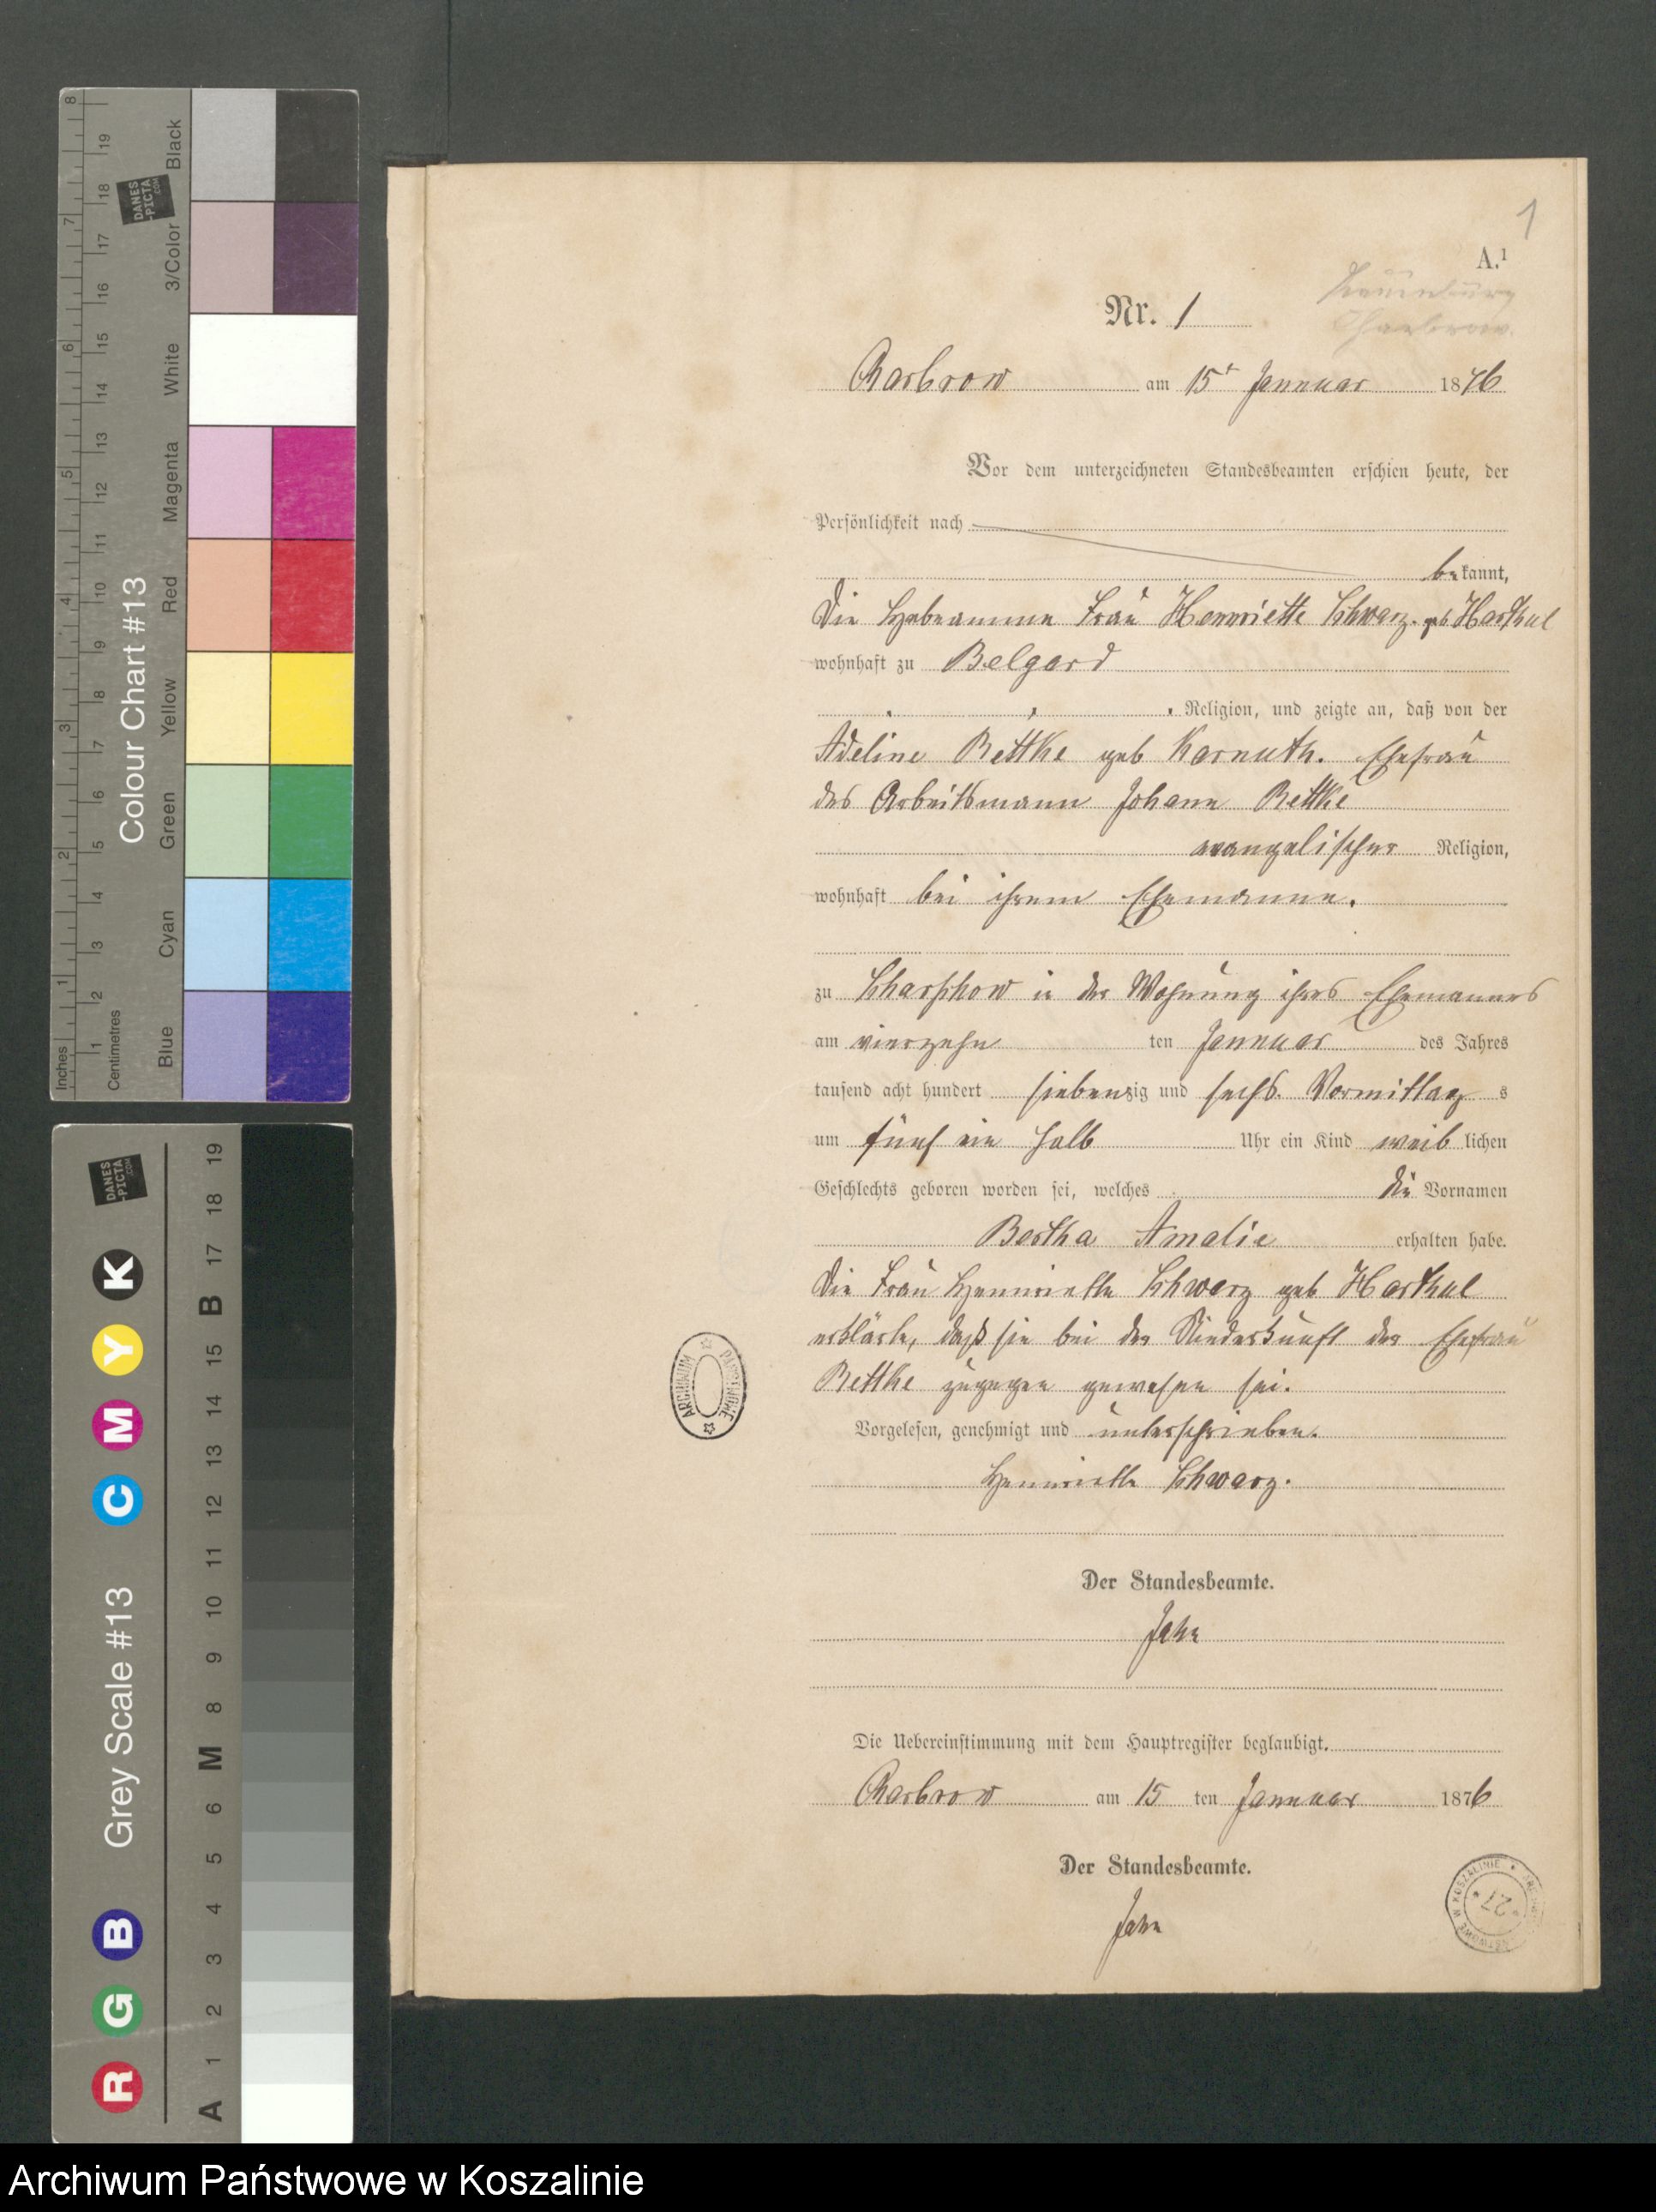 1
A.¹
Lauenburg
Charbrow.
Nr. 1
Charbrow am 15t Januar 1876
Vor dem unterzeichneten Standesbeamten erschien heute, der
Persönlichkeit nach
bekannt,
Die Hebeamme Frau Henriette Schwarz. geb Harthul
wohnhaft zu Belgard
Religion, und zeigte an, daß von der
Adeline Bettke geb Karnuth. Ehefrau
des Arbeitsmann Johann Bettke
evangelischer Religion,
wohnhaft bei ihrem Ehemanne.
zu Scharschow in der Wohnung ihres Ehemannes
am vierzehn ten Januar des Jahres
tausend acht hundert siebenzig und sechs. Vormittag s
um fünf ein halb Uhr ein Kind weib lichen
Geschlechts geboren worden sei, welches die Vornamen
Bertha Amalie erhalten habe.
Die Frau Henriette Schwarz geb Harthul
erklärte, daß sie bei der Niederkunft der Ehefrau
Bettke zugegen gewesen sei.
Vorgelesen, genehmigt und unterschrieben.
Henriette Schwarz.
Der Standesbeamte.
Jahn
Die Uebereinstimmung mit dem Hauptregister beglaubigt.
Charbrow am 15 ten Januar 1876
Der Standesbeamte.
Jahn
ARCHIWUM PAŃSTWOWE
W KOSZALINIE
27
Inches 1 2 3 4 5 6 7 8
Centimetres 1 2 3 4 5 6 7 8 9 10 11 12 13 14 15 16 17 18 19
Colour Chart #13
Blue Cyan Green Yellow Red Magenta White 3/Color Black
DANES
-PICTA
.COM
Grey Scale #13
R G B C M Y K
A 1 2 3 4 5 6 M 8 9 10 11 12 13 14 15 B 17 18 19
DANES
-PICTA
.COM
Archiwum Państwowe w Koszalinie